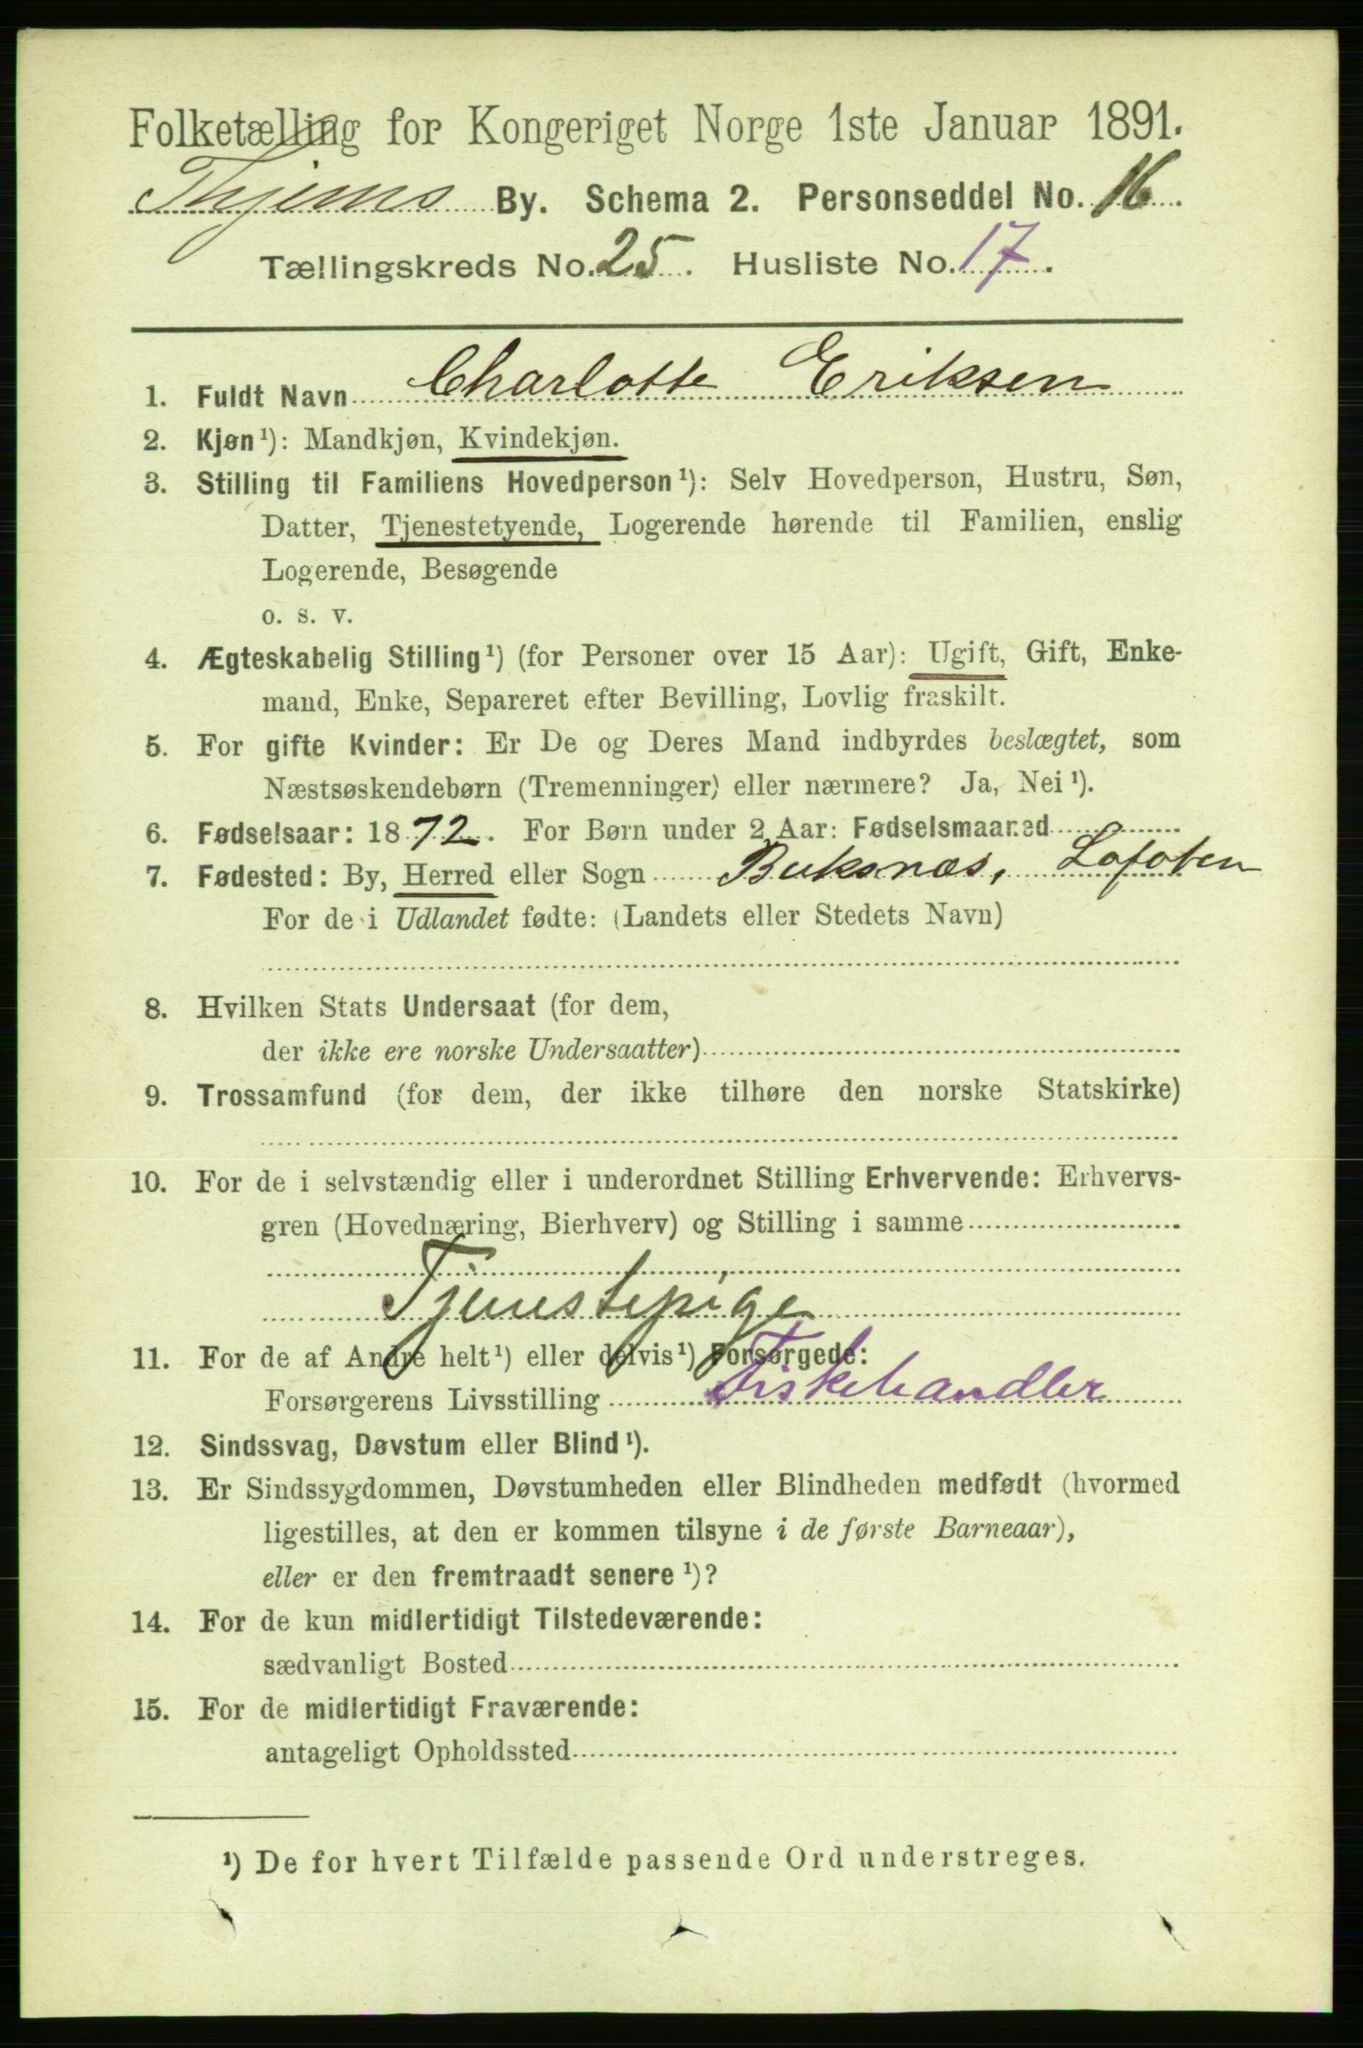 Folketælling for Kongeriget Norge 1ste Januar 1891.
Thjems By. Schema 2. Personseddel No. 16.
Tællingskreds No. 25. Husliste No. 17.
1. Fuldt Navn Charlotte Eriksen
2. Kjøn¹): Mandkjøn, Kvindekjøn.
3. Stilling til Familiens Hovedperson¹): Selv Hovedperson, Hustru, Søn,
Datter, Tjenestetyende, Logerende hørende til Familien, enslig
Logerende, Besøgende
o. s. v.
4. Ægteskabelig Stilling¹) (for Personer over 15 Aar): Ugift, Gift, Enke-
mand, Enke, Separeret efter Bevilling, Lovlig fraskilt.
5. For gifte Kvinder: Er De og Deres Mand indbyrdes beslægtet, som
Næstsøskendebørn (Tremenninger) eller nærmere? Ja, Nei¹).
6. Fødselsaar: 1872. For Børn under 2 Aar: Fødselsmaaned
7. Fødested: By, Herred eller Sogn Buksnæs, Lofoten
For de i Udlandet fødte: (Landets eller Stedets Navn)
8. Hvilken Stats Undersaat (for dem,
der ikke ere norske Undersaatter)
9. Trossamfund (for dem, der ikke tilhøre den norske Statskirke)
10. For de i selvstændig eller i underordnet Stilling Erhvervende: Erhvervs-
gren (Hovednæring, Bierhverv) og Stilling i samme
Tjenestepige
11. For de af Andre helt¹) eller delvis¹) Forsørgede:
Forsørgerens Livsstilling Fiskehandler
12. Sindssvag, Døvstum eller Blind¹).
13. Er Sindssygdommen, Døvstumheden eller Blindheden medfødt (hvormed
ligestilles, at den er kommen tilsyne i de første Barneaar),
eller er den fremtraadt senere¹)?
14. For de kun midlertidigt Tilstedeværende:
sædvanligt Bosted
15. For de midlertidigt Fraværende:
antageligt Opholdssted
¹) De for hvert Tilfælde passende Ord understreges.